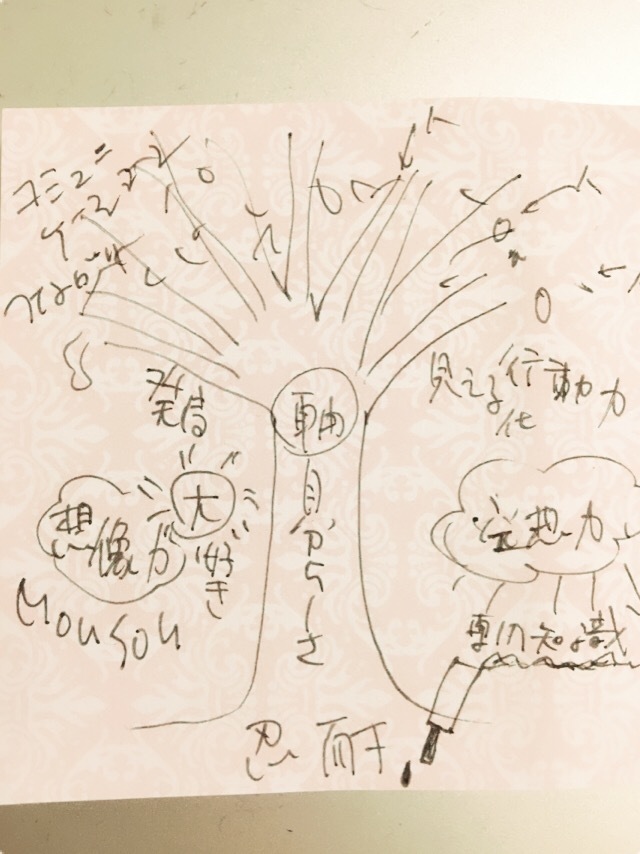 コミュニ
ケーション
つながり
見える化
行動力
軸
自分らしさ
大好き
想像力
MOUSOU
発想力
専門知識
忍耐